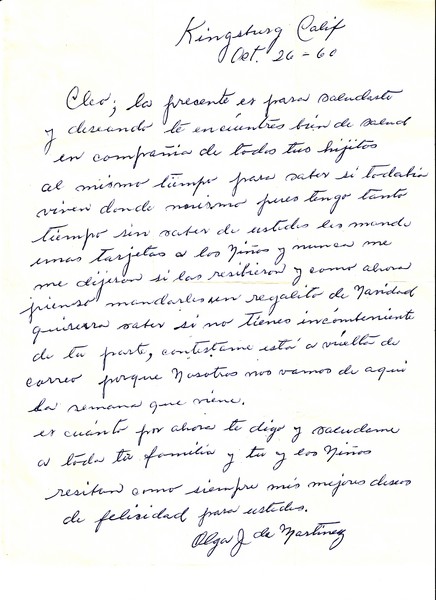 Kingsburg Calif
Oct. 26-60
Cleo; la presente es para saludarte
y deseando te encuentres bién de salud
en compañia de todos tus hijitos
al mismo tiempo para saber si todabia
viven donde mismo pues tengo tanto
tiempo sin saber de ustedes les mande
unas tarjetas a los Niños y nunca me
me dijeron si las resibieron y como ahora
pienso mandarles un regalito de Navidad
quisiera saber si no tienes incombeniente
de tu parte, contestame está a vuelta de
correo porque Nosotros nos vamos de aqui
la semana que viene.
es cuánto por ahora te digo y saludame
a toda tu familia y tu y los Niños
resiban como siempre mis mejores deseos
de felicidad para ustedes.
Olga J. de Martinez